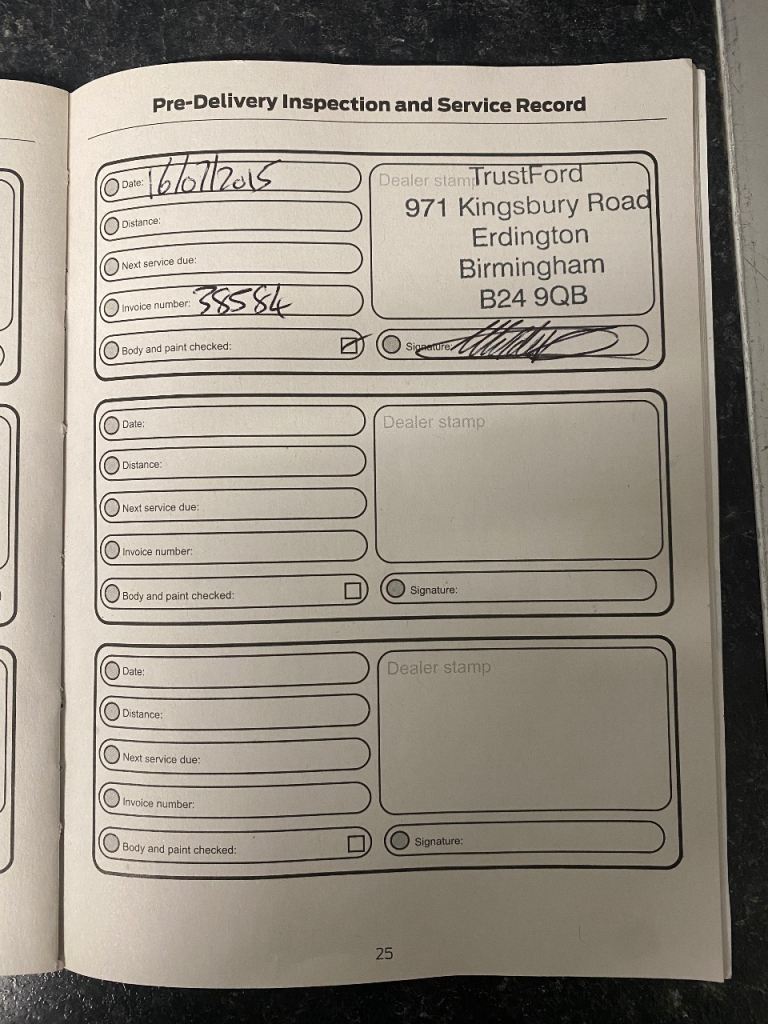 Pre-Delivery Inspection and Service Record
Date: 16/07/2015
Distance:
Next service due:
Invoice number: 38584
Body and paint checked:
Dealer stamp
TrustFord
971 Kingsbury Road
Erdington
Birmingham
B24 9QB
Signature:
Date:
Distance:
Next service due:
Invoice number:
Body and paint checked:
Dealer stamp
Signature:
Date:
Distance:
Next service due:
Invoice number:
Body and paint checked:
Dealer stamp
Signature:
25